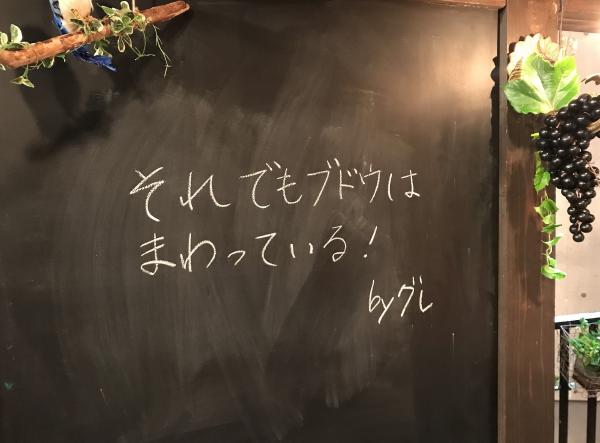 それでもブドウは
まわっている!
byグレ